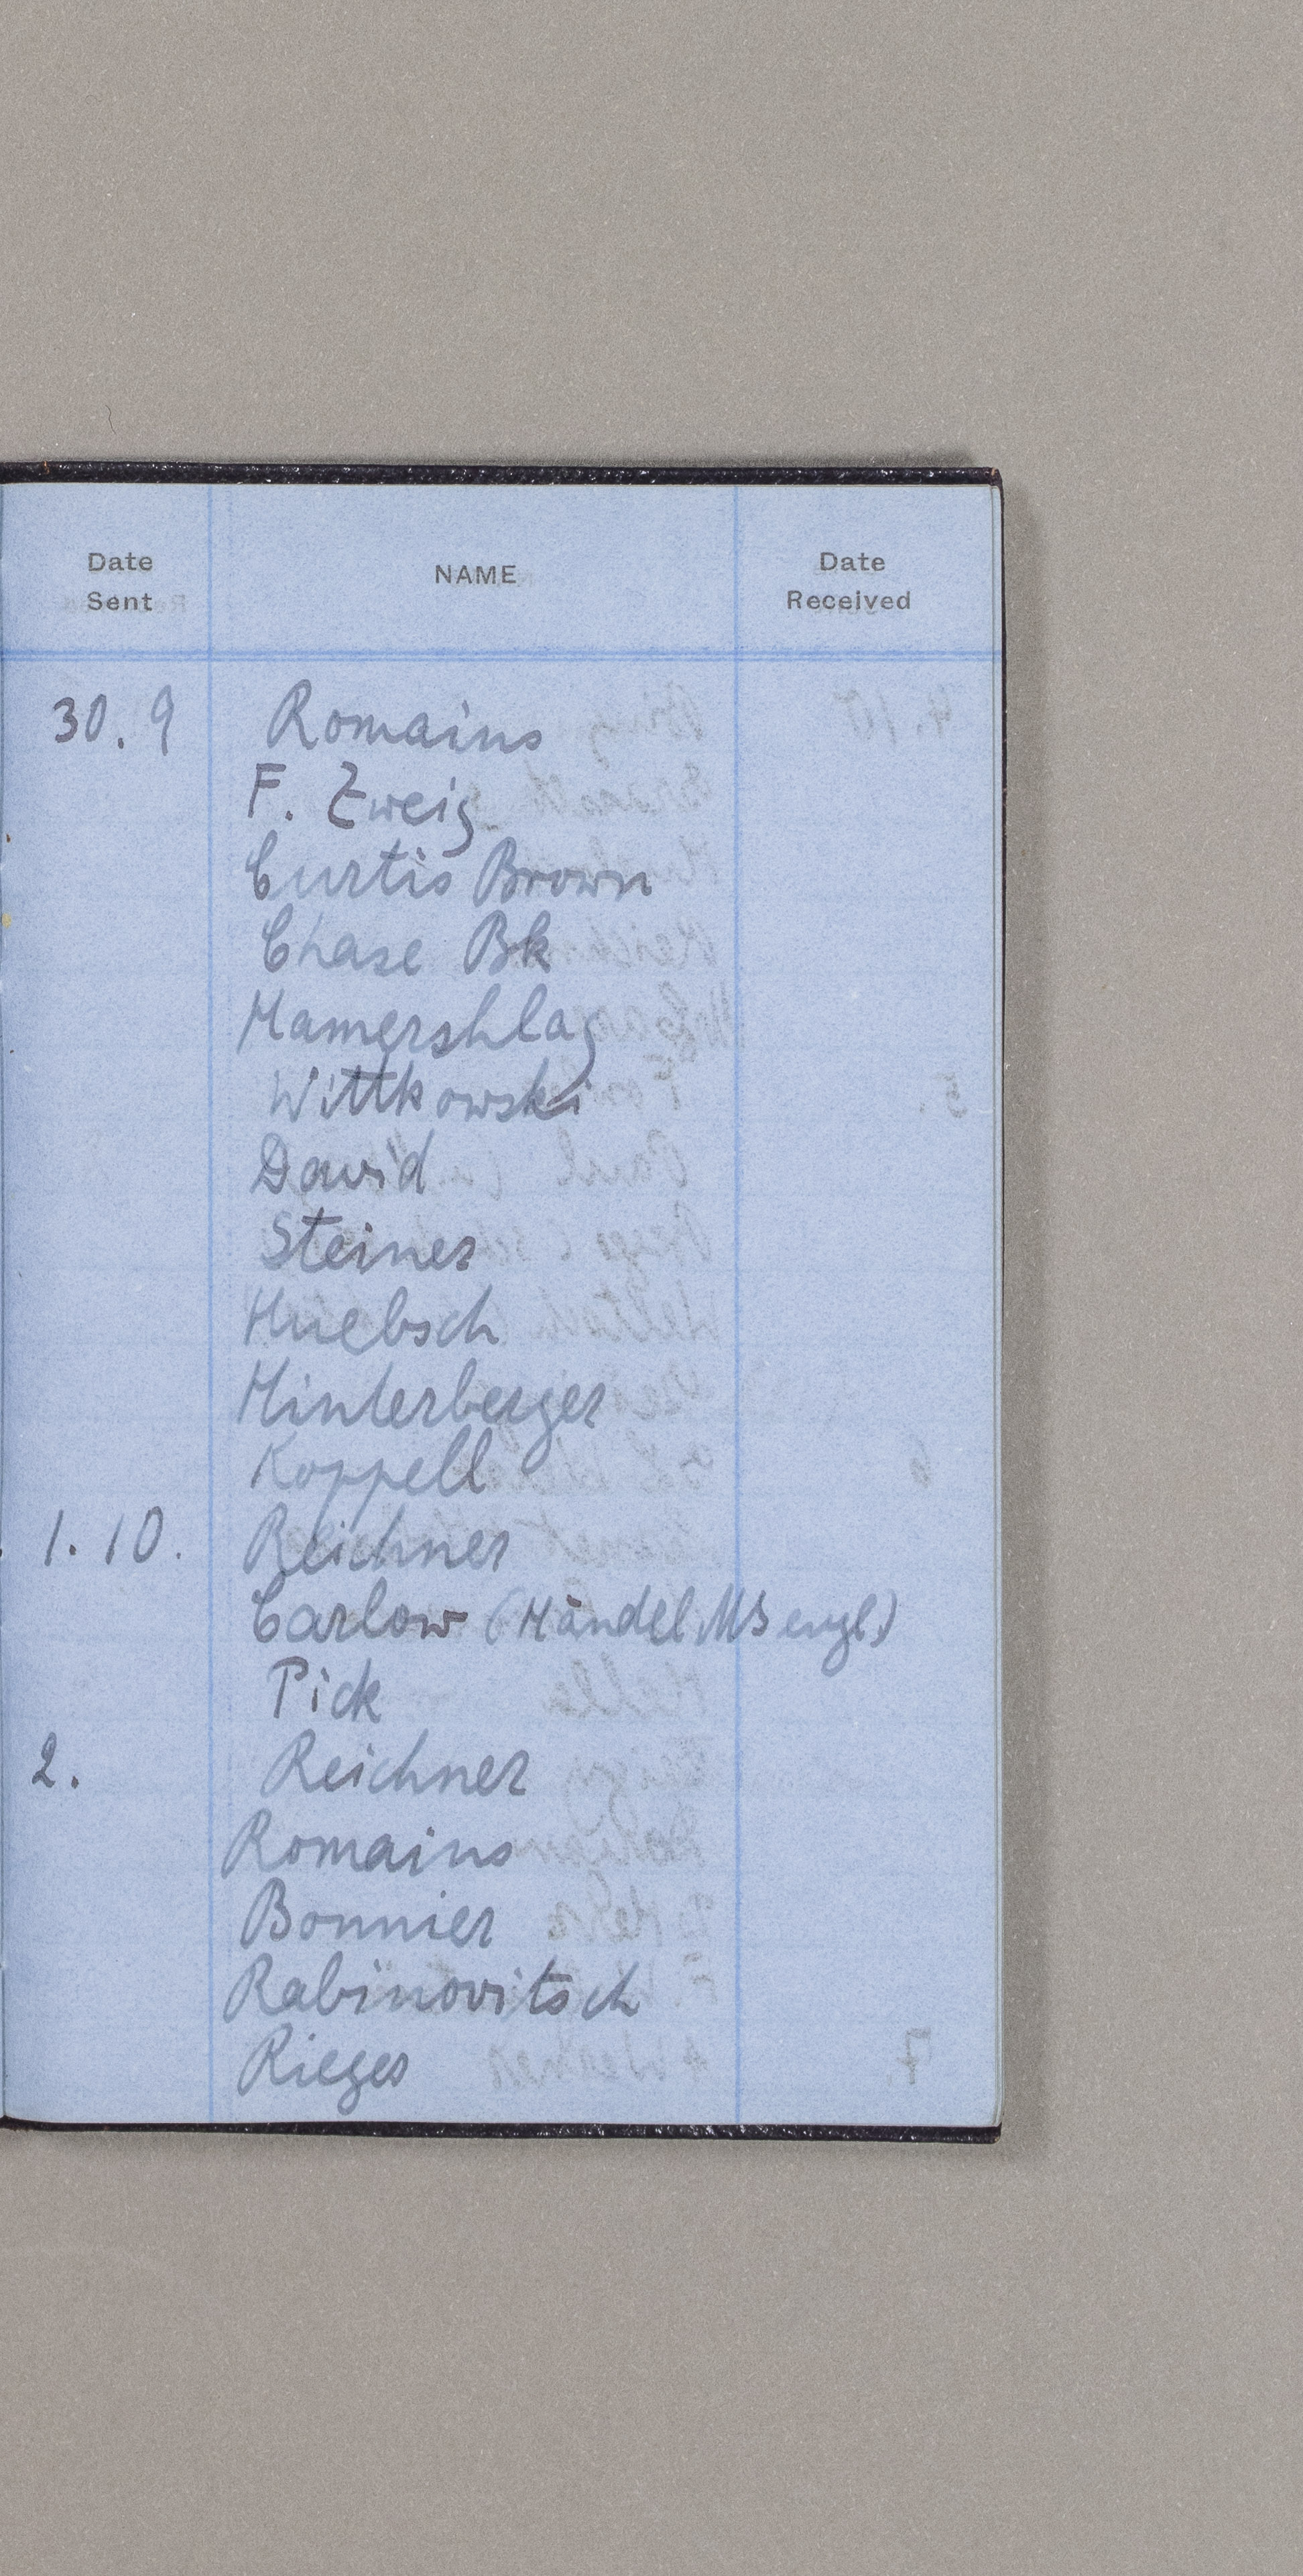 Date Sent NAME Date Received
30. 9 Romains
F. Zweig
Curtis Brown
Chase Bk
Hamershlag
Wittkowski
David
Steiner
Huebsch
Hinterberger
Koppell
1. 10. Reichner
Carlow (Händel MS engl)
Pick
2. Reichner
Romains
Bonnier
Rabinovitsch
Rieger